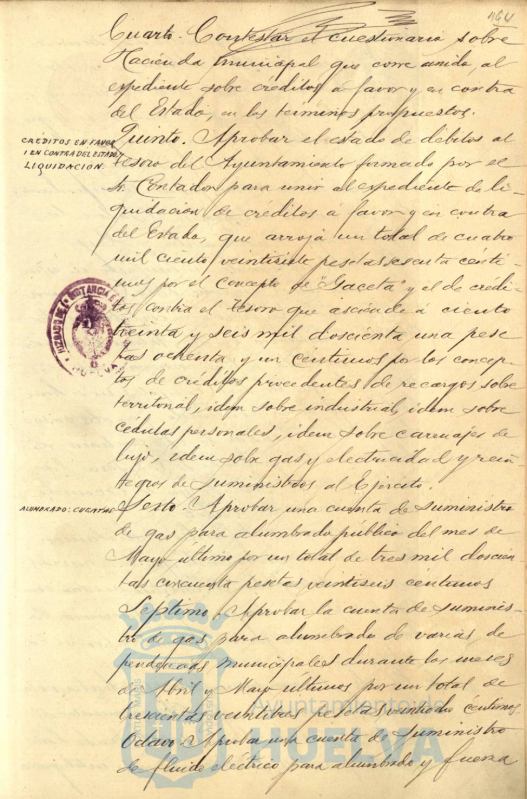 164
Cuarto. Contestar el cuestionario sobre
Hacienda municipal que corre unido al
expediente sobre créditos á favor y en contra
del Estado, en los términos propuestos.
CRÉDITOS EN FAVOR
I EN CONTRA DEL ESTADO,
LIQUIDACIÓN.
Quinto. Aprobar el estado de débitos al
tesoro del Ayuntamiento formado por el
Sr. Contador para unir al expediente de li-
quidación de créditos á favor y en contra
del Estado, que arroja un total de cuatro
mil ciento veintisiete pesetas sesenta cénti-
mos por el concepto de "Gaceta" y el de crédi-
tos contra el Tesoro que asciende á ciento
treinta y seis mil doscienta una pese
tas ochenta y un centimos por los concep-
tos de créditos procedentes de recargos sobre
territorial, idem sobre industrial, idem sobre
cédulas personales, idem sobre carruajes de
lujo, idem sobre gas y electricidad y rein-
tegros de suministros al Ejército.
JUZGADO DE 1ª INSTANCIA
HUELVA
ALUMBRADO: CUENTAS
Sexto. Aprobar una cuenta de suministro
de gas para alumbrado público del mes de
Mayo ultimo por un total de tres mil doscien
tas cincuenta pesetas veintiseis céntimos
Septimo. Aprobar la cuenta de suminis-
tro de gas para alumbrado de varias de
pendencias municipales durante los meses
de Abril y Mayo ultimos por un total de
trescientas veintitres pesetas céntimos
Octavo. Aprobar una cuenta de suministro
de fluido electrico para alumbrado y fuerza
Ayuntamiento de
HUELVA